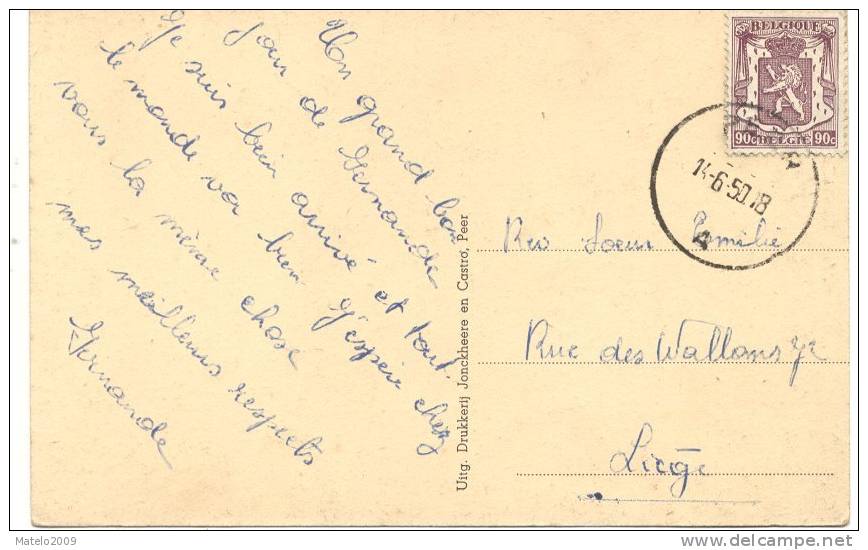 Un grand bonjour de Fernande
Je suis bien arrivé et tout
le monde va bien J'espère chez
vous la même chose
mes meilleurs respects
Fernande
Uitg. Drukkerij Jonckheere en Castro, Peer
BELGIQUE
90c BELGIE 90c
14-6-50 18
A
Rev Soeur Emilie
Rue des Wallons 72
Liège
Matelo2009
delcampe.net